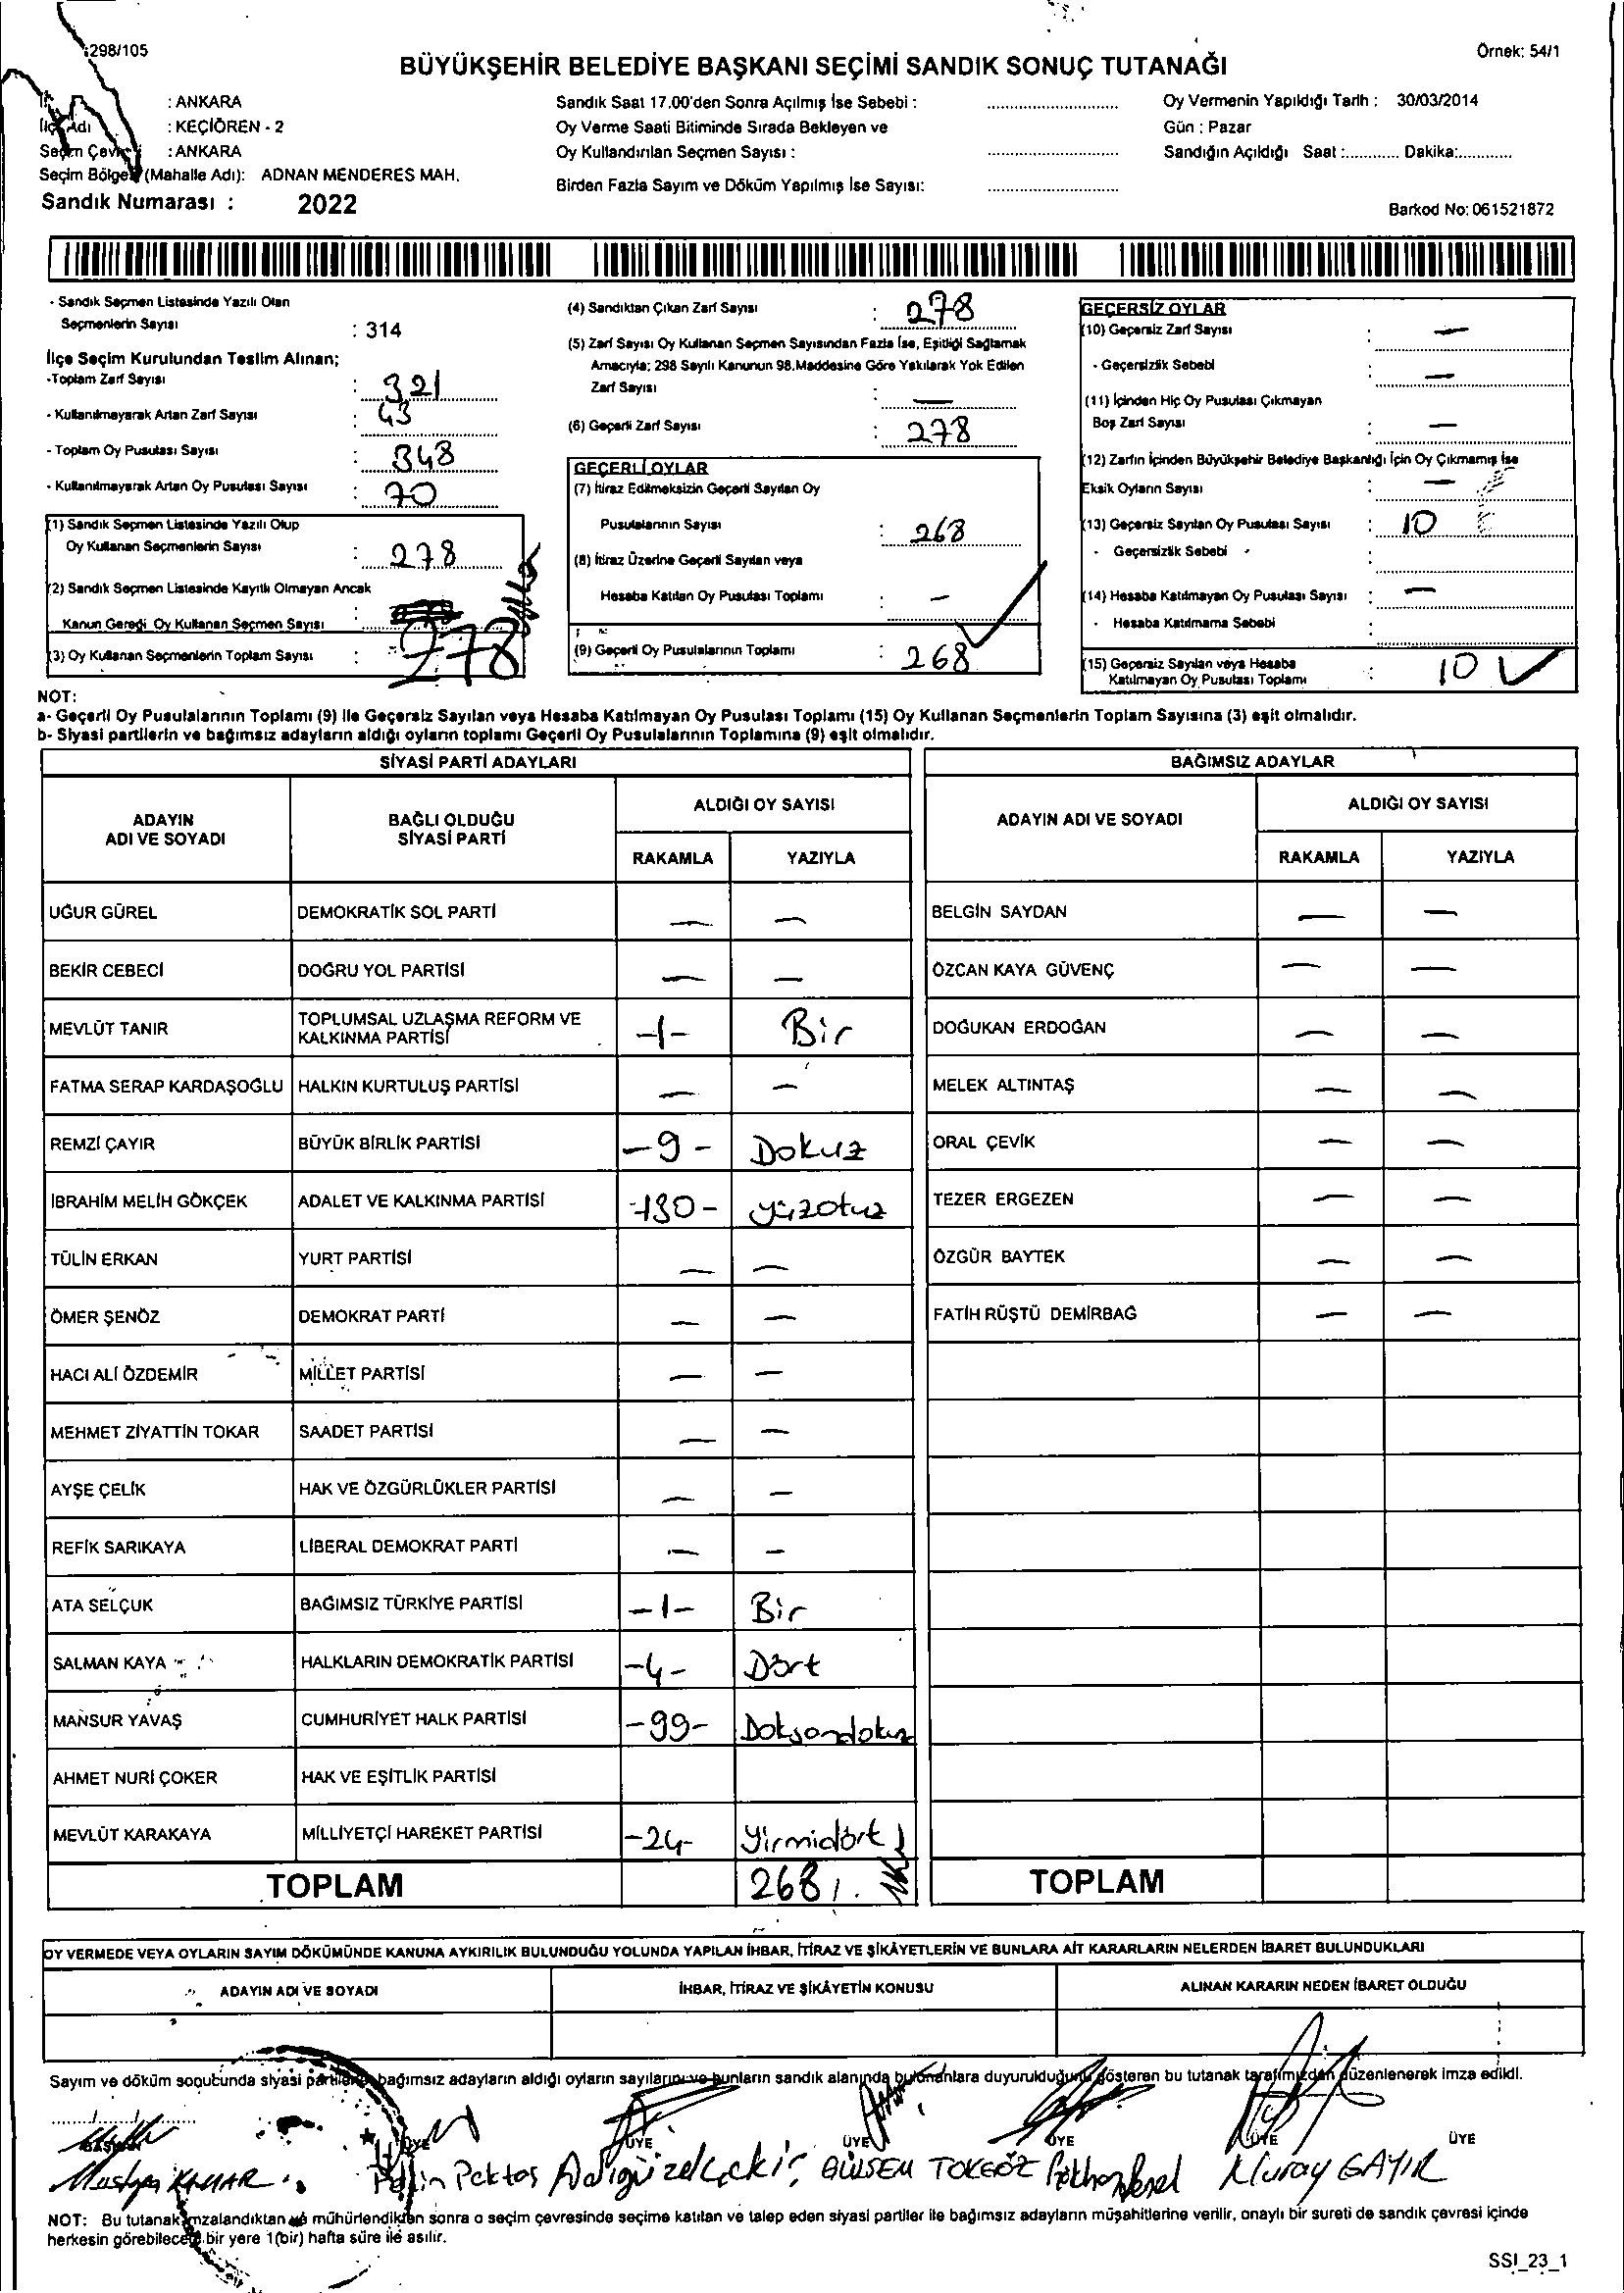 298/105
Örnek: 54/1
BÜYÜKŞEHİR BELEDİYE BAŞKANI SEÇİMİ SANDIK SONUÇ TUTANAĞI
: ANKARA
İlçe Adı : KEÇİÖREN - 2
Seçim Çevresi : ANKARA
Seçim Bölgesi (Mahalle Adı): ADNAN MENDERES MAH.
Sandık Numarası : 2022
Sandık Saat 17.00'den Sonra Açılmış İse Sebebi :
Oy Verme Saati Bitiminde Sırada Bekleyen ve
Oy Kullandırılan Seçmen Sayısı :
Birden Fazla Sayım ve Döküm Yapılmış İse Sayısı:
Oy Vermenin Yapıldığı Tarih : 30/03/2014
Gün : Pazar
Sandığın Açıldığı Saat :............ Dakika:............
Barkod No: 061521872
- Sandık Seçmen Listesinde Yazılı Olan
Seçmenlerin Sayısı : 314
İlçe Seçim Kurulundan Teslim Alınan;
-Toplam Zarf Sayısı : 321
- Kullanılmayarak Artan Zarf Sayısı : 43
- Toplam Oy Pusulası Sayısı : 348
- Kullanılmayarak Artan Oy Pusulası Sayısı : 70
(1) Sandık Seçmen Listesinde Yazılı Olup
Oy Kullanan Seçmenlerin Sayısı : 278
(2) Sandık Seçmen Listesinde Kayıtlı Olmayan Ancak
Kanun Gereği Oy Kullanan Seçmen Sayısı :
(3) Oy Kullanan Seçmenlerin Toplam Sayısı : 278
(4) Sandıktan Çıkan Zarf Sayısı : 278
(5) Zarf Sayısı Oy Kullanan Seçmen Sayısından Fazla İse, Eşitliği Sağlamak
Amacıyla; 298 Sayılı Kanunun 98.Maddesine Göre Yakılarak Yok Edilen
Zarf Sayısı : —
(6) Geçerli Zarf Sayısı : 278
GEÇERLİ OYLAR
(7) İtiraz Edilmeksizin Geçerli Sayılan Oy
Pusulalarının Sayısı : 268
(8) İtiraz Üzerine Geçerli Sayılan veya
Hesaba Katılan Oy Pusulası Toplamı : —
(9) Geçerli Oy Pusulalarının Toplamı : 268
GEÇERSİZ OYLAR
(10) Geçersiz Zarf Sayısı : —
- Geçersizlik Sebebi : —
(11) İçinden Hiç Oy Pusulası Çıkmayan
Boş Zarf Sayısı : —
(12) Zarfın İçinden Büyükşehir Belediye Başkanlığı İçin Oy Çıkmamış İse
Eksik Oyların Sayısı : —
(13) Geçersiz Sayılan Oy Pusulası Sayısı : 10
- Geçersizlik Sebebi
(14) Hesaba Katılmayan Oy Pusulası Sayısı : —
- Hesaba Katılmama Sebebi :
(15) Geçersiz Sayılan veya Hesaba
Katılmayan Oy Pusulası Toplamı : 10
NOT:
a- Geçerli Oy Pusulalarının Toplamı (9) ile Geçersiz Sayılan veya Hesaba Katılmayan Oy Pusulası Toplamı (15) Oy Kullanan Seçmenlerin Toplam Sayısına (3) eşit olmalıdır.
b- Siyasi partilerin ve bağımsız adayların aldığı oyların toplamı Geçerli Oy Pusulalarının Toplamına (9) eşit olmalıdır.
SİYASİ PARTİ ADAYLARI
ADAYIN ADI VE SOYADI
BAĞLI OLDUĞU SİYASİ PARTİ
ALDIĞI OY SAYISI
RAKAMLA YAZIYLA
UĞUR GÜREL DEMOKRATİK SOL PARTİ — —
BEKİR CEBECİ DOĞRU YOL PARTİSİ — —
MEVLÜT TANIR TOPLUMSAL UZLAŞMA REFORM VE KALKINMA PARTİSİ -1- Bir
FATMA SERAP KARDAŞOĞLU HALKIN KURTULUŞ PARTİSİ — —
REMZİ ÇAYIR BÜYÜK BİRLİK PARTİSİ -9- Dokuz
İBRAHİM MELİH GÖKÇEK ADALET VE KALKINMA PARTİSİ -130- yüzotuz
TÜLİN ERKAN YURT PARTİSİ — —
ÖMER ŞENÖZ DEMOKRAT PARTİ — —
HACI ALİ ÖZDEMİR MİLLET PARTİSİ — —
MEHMET ZİYATTİN TOKAR SAADET PARTİSİ — —
AYŞE ÇELİK HAK VE ÖZGÜRLÜKLER PARTİSİ — —
REFİK SARIKAYA LİBERAL DEMOKRAT PARTİ — —
ATA SELÇUK BAĞIMSIZ TÜRKİYE PARTİSİ -1- Bir
SALMAN KAYA HALKLARIN DEMOKRATİK PARTİSİ -4- Dört
MANSUR YAVAŞ CUMHURİYET HALK PARTİSİ -99- Doksandokuz
AHMET NURİ ÇOKER HAK VE EŞİTLİK PARTİSİ
MEVLÜT KARAKAYA MİLLİYETÇİ HAREKET PARTİSİ -24- Yirmidört
TOPLAM 268
BAĞIMSIZ ADAYLAR
ADAYIN ADI VE SOYADI
ALDIĞI OY SAYISI
RAKAMLA YAZIYLA
BELGİN SAYDAN — —
ÖZCAN KAYA GÜVENÇ — —
DOĞUKAN ERDOĞAN — —
MELEK ALTINTAŞ — —
ORAL ÇEVİK — —
TEZER ERGEZEN — —
ÖZGÜR BAYTEK — —
FATİH RÜŞTÜ DEMİRBAĞ — —
TOPLAM
OY VERMEDE VEYA OYLARIN SAYIM DÖKÜMÜNDE KANUNA AYKIRILIK BULUNDUĞU YOLUNDA YAPILAN İHBAR, İTİRAZ VE ŞİKÂYETLERİN VE BUNLARA AİT KARARLARIN NELERDEN İBARET BULUNDUKLARI
ADAYIN ADI VE SOYADI İHBAR, İTİRAZ VE ŞİKÂYETİN KONUSU ALINAN KARARIN NEDEN İBARET OLDUĞU
Sayım ve döküm sonucunda siyasi partilerin bağımsız adayların aldığı oyların sayılarını ve bunların sandık alanında bulunanlara duyurulduğunu gösteren bu tutanak tarafımızdan düzenlenerek imza edildi.
BAŞKAN ÜYE ÜYE ÜYE ÜYE ÜYE ÜYE
Pelin Pektaş GÜLSEM TOKGÖZ Nuray GAYIR
NOT: Bu tutanak imzalandıktan ve mühürlendikten sonra o seçim çevresinde seçime katılan ve talep eden siyasi partiler ile bağımsız adayların müşahitlerine verilir, onaylı bir sureti de sandık çevresi içinde
herkesin görebileceği bir yere 1(bir) hafta süre ile asılır.
SSI_23_1